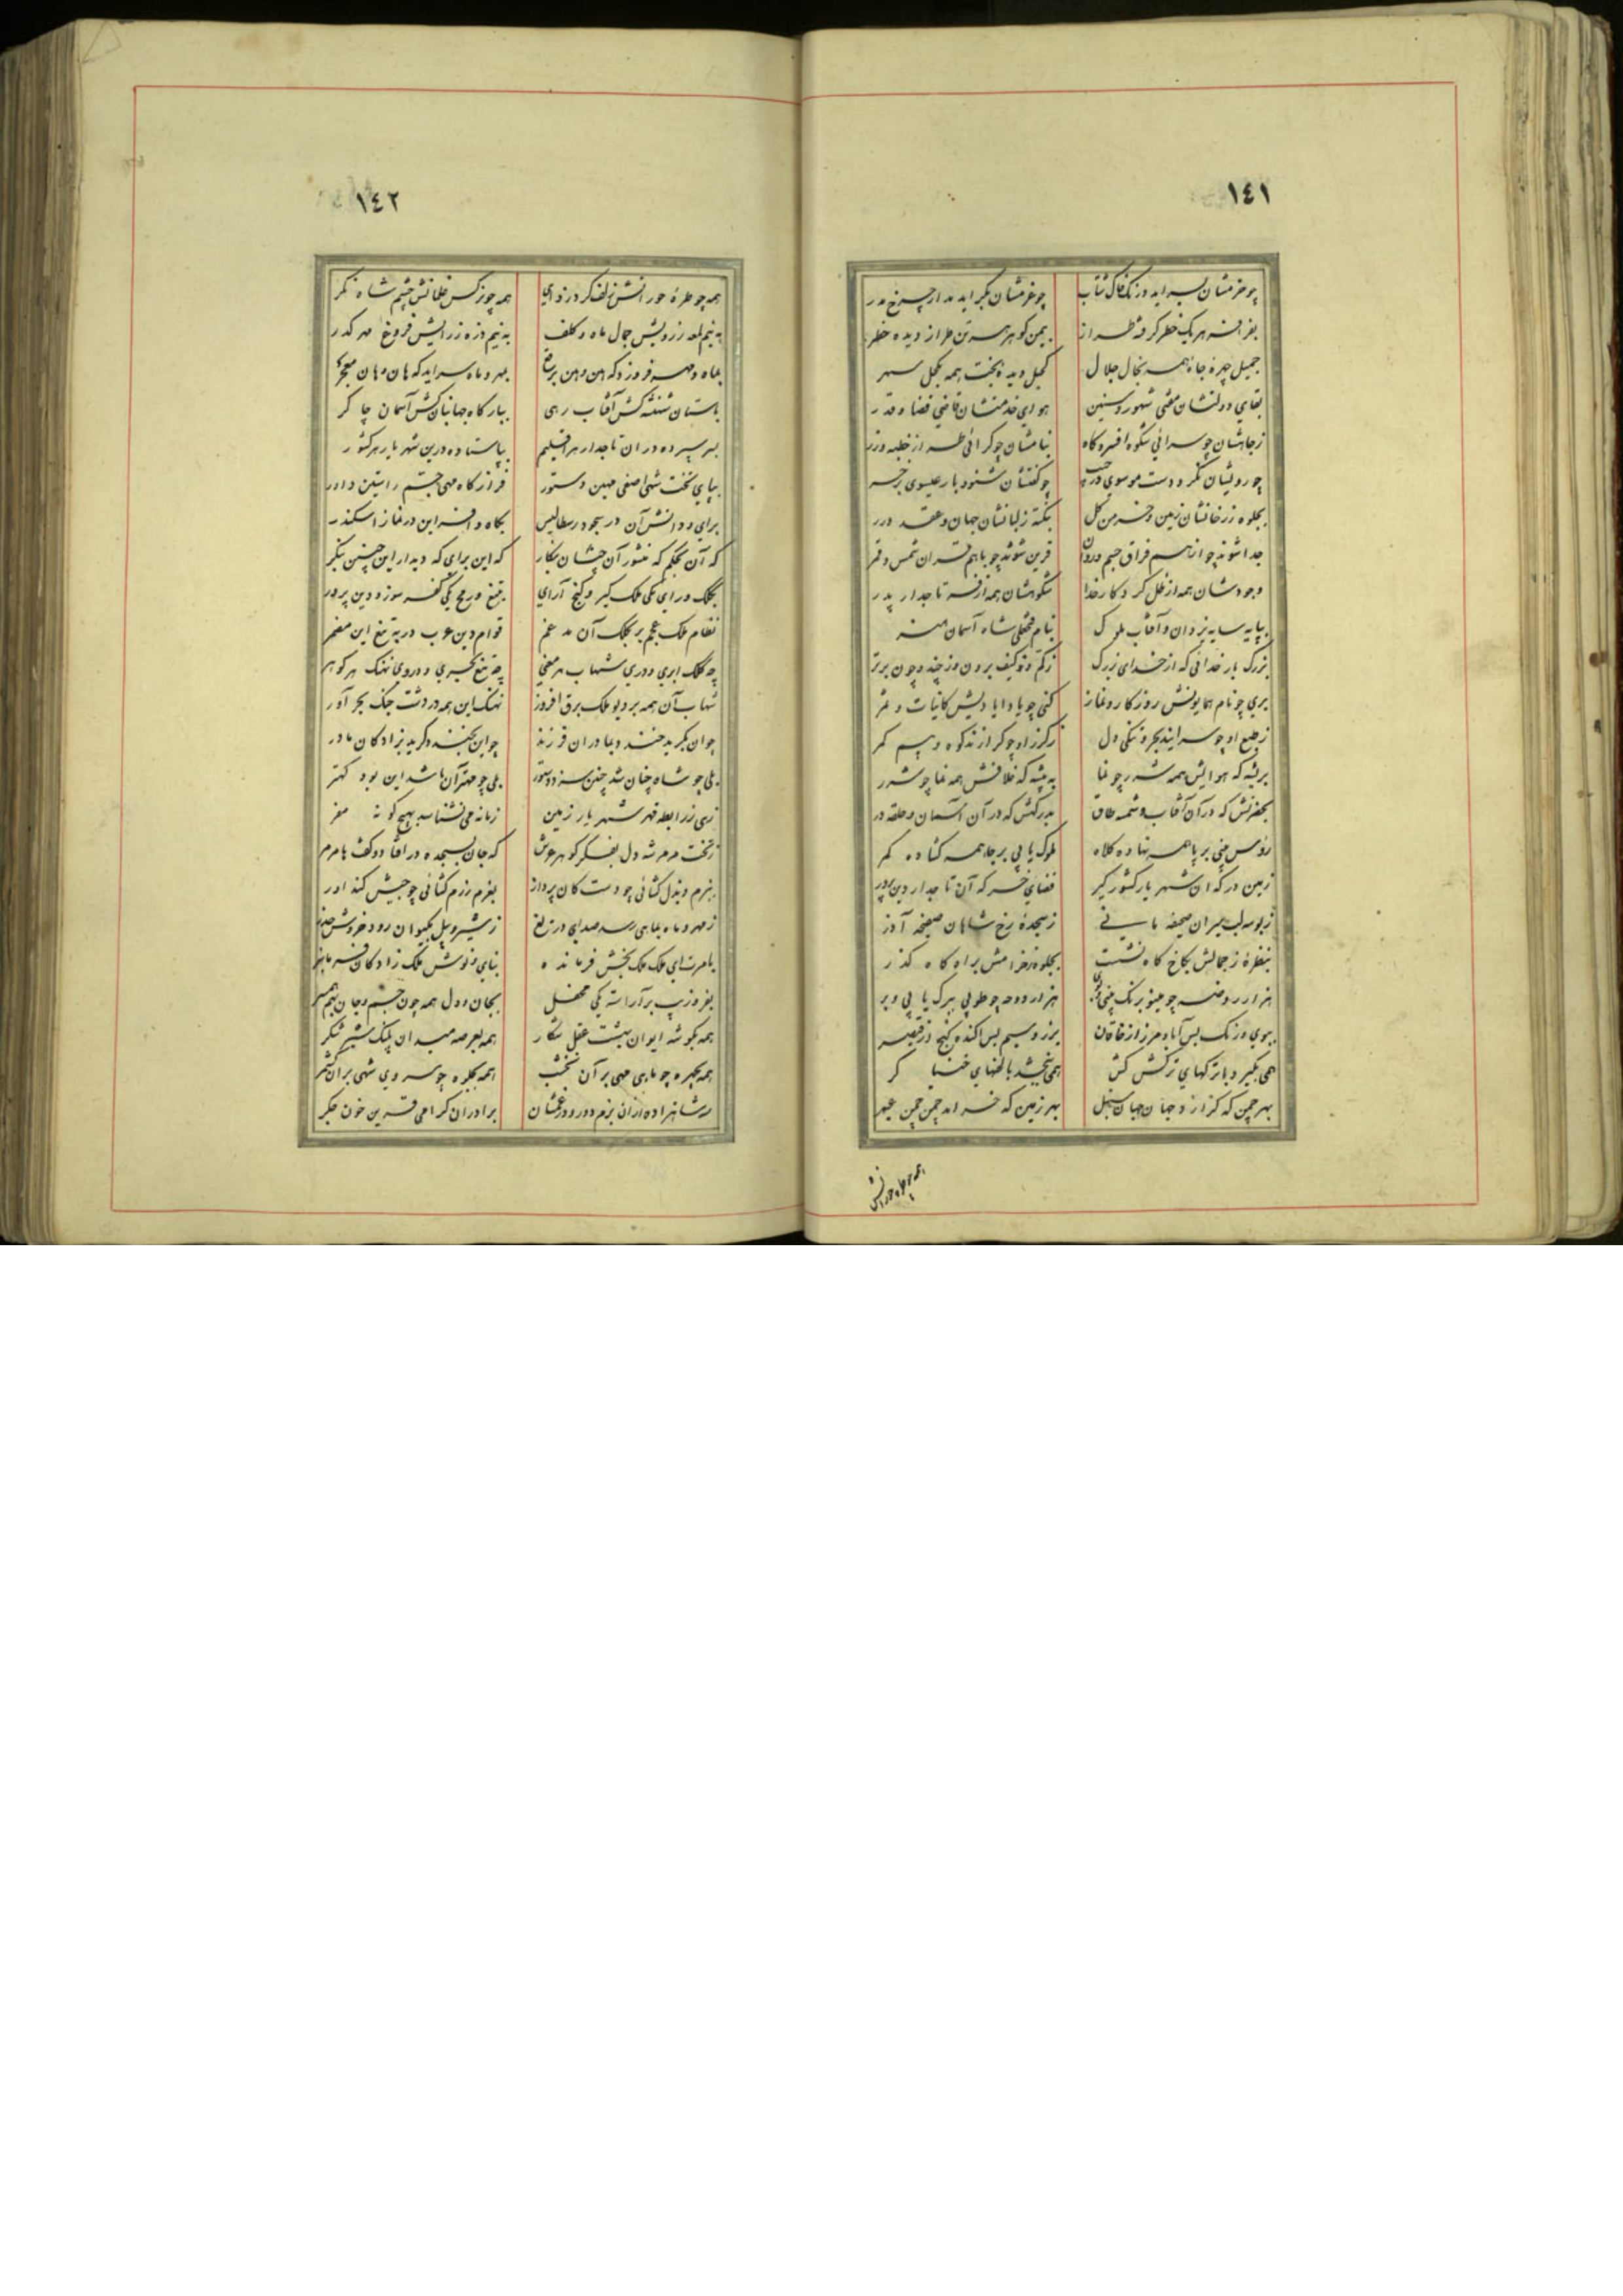 ١٤١
چو حزمشان بسراید درنگ خاک شتاب چو عزمشان بگراید مدار چرخ مدر
بفر افسر هر یک خطر گرفته طراز بیمن گوهر هر تن طراز دیده خطر
جمیل چهرهٔ جاه همه بخال جلال کحیل دیدهٔ بخت همه بکحل سهر
بقای دولتشان مفتی شهور و سنین هوای خدمتشان قاضی قضا و قدر
زجاهشان چو سرائی شکوه افسر و گاه بنامشان چو گرائی طراز خطبه و زر
چو رویشان نگر و دست موسوی در جیب چو گفتشان شنود بار عیسوی بر خر
بجلوه زرخانشان زمین و خرمن گل بنکته زلبانشان جهان و عقد درر
جدا شوند چو از هم فراق جسم و روان قرین شوند چو باهم قران شمس و قمر
وجودشان همه از ظل کردگار خدا شکوهشان همه از فر تاجدار پدر
بپایه سایه یزدان و آفتاب ملوک بنام فتحعلی شاه آسمان
بزرگ بار خدائی که از خدای بزرگ زکم و ز کیف برون و ز چند و چون برتر
بری چو نام همایونش روزگار و نماز کنی چو یاد ایادیش کاینات و
زطبع او چو سرایند بحر و تنگی دل زگرز او چو گرازند کوه و بیم کمر
بریشه که هوایش همه شرر چو نما به بیشه که خلافش همه نما چو شرر
بحضرتش که در آن آفتاب و شمسه طاق بدرگهش که در آن آسمان و حلقه در
رؤس بینی بر پا همه نهاده کلاه ملوک یابی بر جا همه گشاده کمر
زمین درگه آن شهریار کشورگیر فضای حضرت آن تاجدار دین پرور
زبوسه لب میران صحیفه مانی زسجدهٔ رخ شاهان صفیحه آذر
بنظرهٔ ز جمالش بکاخ گاه نشست بجلوه ز خرامش براه گاه گذر
هزار روضه چو مینو برنگ بینی هزار دوحه چو طوبی ببرگ یابی و بر
ببوی و رنگ بس آباد مرز از خاقان بزر و سیم بس آکنده گنج از قیصر
همی بگیرد با ترکهای ترکش کش همی ببخشد با لفتهای خنیاگر
بهر چمن که گرازد جهان جهان سنبل بهر زمین که خرامد چمن چمن عبهر
همه چو طرهٔ حورانش
١٤٢
همه چو طرهٔ حورانش زلف گرد زدای همه چو نرگس غلمانش چشم شاه نگر
به نیم لمعه ز رویش جمال ماه و کلف به نیم ذره ز رایش فروغ مهر و کدر
بماه و مهر فروزد که هین و هین برقع بمهر و ماه سراید که هان و هان معجر
باستان شهنشه کش آفتاب رهی ببارگاه جهانبان کش آسمان چاکر
بسر سپرده در ان تاجدار هر اقلیم بپا ستاده درین شهریار هر کشور
بپای تخت شهی اصفی مهین دستور فراز گاه مهی جم راستین داور
برای و دانش آن در سجود رسطالیس بگاه و افسر این در نماز اسکندر
که آن بحکم که منشور آن چنان بنگار که این برای که دیدار این چنین بنگر
بکلک و رای یکی ملک گیر و گنج آرای بتیغ و رمح یکی کفر سوز و دین پرور
نظام ملک عجم بر بکلک آن مدغم قوام دین عرب در به تیغ این مضمر
چه کلک ابری و دروی شهاب هر معنی چه تیغ بحری و دروی نهنگ هر گوهر
شهاب آن همه بر دیو ملک برق افروز نهنگ این همه در دشت جنگ بحر آور
چو ان بگرید خندد دعا دران فرزند چو این بخندد گرید بزادگان مادر
بلی چو شاه چنان شد چنین سزد دستور بلی چو مهتر آن باشد این بود کهتر
زهی ز رابطه قهر شهریار زمین زمانه می نشناسد بهیچ گونه مفر
زتخت مرمر شه دل بفکر گوهر عرش که جان بسجده در افتاد و گفت ها مرمر
ببزم و بذل گشائی چو دست کان پرداز بعزم رزم گشائی چو جیش کند آور
ز مهر و ماه بماهی رسد صدای ز شیر و پیل بکیوان رود خروش حذر
بامرت ای ملک ملک بخش فرمانده بنای و نوش ملک زادگان فرمانبر
بفر و زیب بر آراسته یکی محفل بجان و دل همه چون جسم و جان بهم همسر
همه بگوشه ایوان بهشت عقل شکار همه بعرصه میدان پلنگ شیر شکر
همه بچهره چو ماهی مهی بر آن نخشب همه بجلوه چو سروی شهی بر آن کشمر
مه شاهزاده از ان بزم دور و دور غمشان برادران گرامی قرین خون جگر